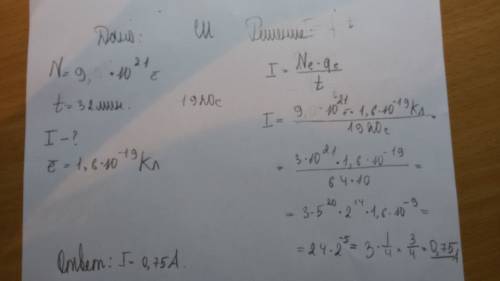 Дано:
СИ
Решение:
N = 9, · 10²¹ ē
t = 32 мин.
1920 с
I - ?
ē = 1,6·10⁻¹⁹ Кл
I = Nₑ · qₑ / t
I = 9, · 10²¹ · 1,6·10⁻¹⁹ Кл / 1920 с =
= 3·10²¹ · 1,6·10⁻¹⁹ / 64·10 =
= 3·5²⁰ · 2¹⁴ · 1,6·10⁻⁹ =
= 24·2⁻⁵ = 3 · 1/4 · 3/4 · 0,75 А
Ответ: I - 0,75 А.